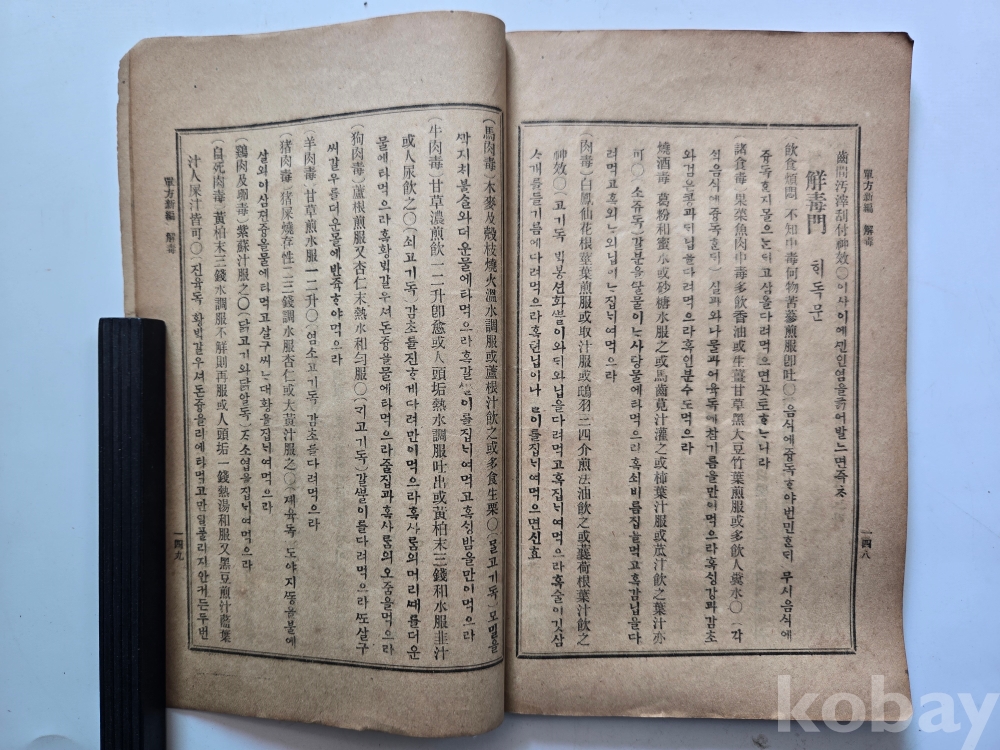 單方新編 解毒
一四八
齒間汚滓刮付神效○이사이에씬인염을긁어발느면즉초
解毒門 히독문
飮食煩悶 不知中毒何物苦蔘煎服卽吐○음식에즁독ᄒᆞ야번민ᄒᆞ되 무시음식에
즁독ᄒᆞᆫ지몰으ᄂᆞᆫ되고삼을다려먹으면곳토ᄒᆞᄂᆞ니라
諸食毒 果菜魚肉中毒多飮香油或生薑甘草黑大豆竹葉煎服或多飮人糞水○(각
식음식에즁독ᄒᆞᆫ되)실과와나물과어육독에참기름을만이먹으라혹싱강과감초
와검은콩과되닙을다려먹으라혹인분수도먹으라
燒酒毒 葛粉和蜜水或砂糖水服之或馬齒莧汁灌之或柿葉汁服或苽汁飮之葉汁亦
可○(소쥬독)갈분을ᄭᅮᆯ물이ᄂᆞ사당물에타먹으라혹쇠비름집을먹고혹감닙을다
려먹고혹외ᄂᆞ외닙이ᄂᆞ집ᄂᆡ여먹으라
(肉毒)白鳳仙花根莖葉煎服或取汁服或鴟羽三四介煎法油飮之或蘘荷根葉汁飮之
神效○고기독 빅봉션화ᄲᅮᆯ이와되와닙을다려먹고혹집ᄂᆡ여먹으라혹술이깃삼
ᄉᆞ개를들기름에다려먹으라혹양하닙이나 ᄲᅮᆯ이를집ᄂᆡ여먹으면신효
(馬肉毒)木麥及殼枝燒火溫水調服或蘆根汁飮之或多食生栗○(말고기독)모밀을
ᄭᅡᆨ지치불술와더운물에타먹으라혹갈ᄲᅮᆯ이를집ᄂᆡ여먹고혹싱밤을만이먹으라
(牛肉毒)甘草濃煎飮一二升卽愈或人頭垢熱水調服吐出或黃柏末三錢和水服韭汁
或人尿飮之○(쇠고기독)감초를진ᄒᆞ게다려만이먹으라혹사ᄅᆞᆷ의머리ᄯᆡ를더운
물에타먹으라혹황빅갈우셔돈즁을물에타먹으라줄집과혹사ᄅᆞᆷ의오줌을먹으라
(狗肉毒)蘆根煎服又杏仁末熱水和勻服○(ᄀᆡ고기독)갈ᄲᅮᆯ이를다려먹으라ᄯᅩ살구
씨갈우를더운물에반쥭ᄒᆞ야먹으라
羊肉毒)甘草煎水服一二升○(염소고기독)감초를다려먹으라
(猪肉毒)猪屎燒存性二三錢調水服杏仁或大黃汁服之○(제육독)도야지ᄯᅩᆼ을불에
살와이삼젼즁을물에타먹고살구씨ᄂᆞ대황을집ᄂᆡ여먹으라
(鷄肉及卵毒)紫蘇汁服之○(닭고기와닭알독)자소엽을집ᄂᆡ여먹으라
(自死肉毒)黃柏末三錢水調服不解則再服或人頭垢一錢熱湯和服又黑豆煎汁薤葉
汁人屎汁皆可○(진육독)황빅갈우셔돈즁을ᄅᆡᆼ슈에타먹고만일풀리지안커든두번
單方新編 解毒
一四九
kobay